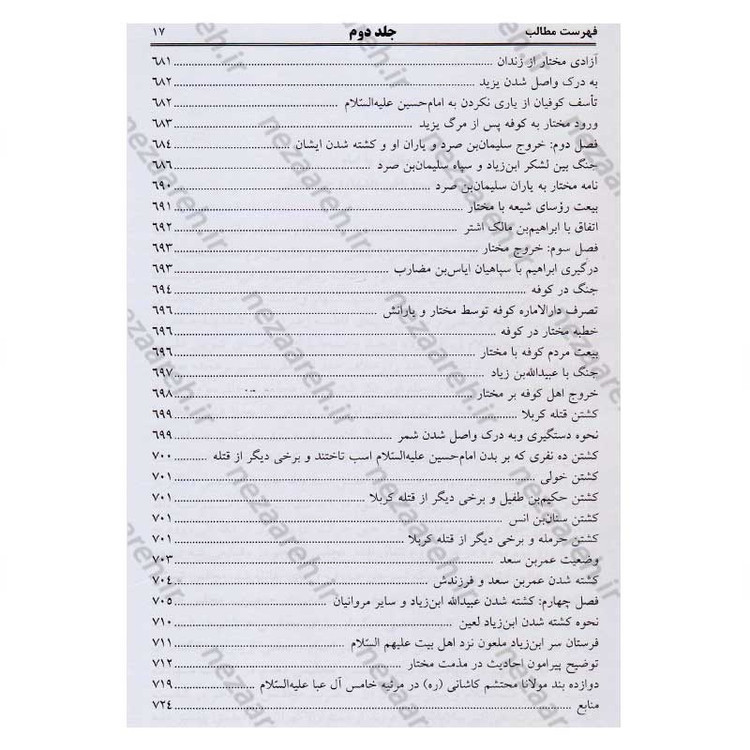 فهرست مطالب جلد دوم ۱۷
آزادی مختار از زندان ۶۸۱
به درک واصل شدن یزید ۶۸۲
تأسف کوفیان از یاری نکردن به امام‌حسین علیه‌السّلام ۶۸۲
ورود مختار به کوفه پس از مرگ یزید ۶۸۳
فصل دوم: خروج سلیمان‌بن صرد و یاران او و کشته شدن ایشان ۶۸۴
جنگ بین لشکر ابن‌زیاد و سپاه سلیمان‌بن صرد ۶۸۶
نامه مختار به یاران سلیمان‌بن صرد ۶۹۰
بیعت رؤسای شیعه با مختار ۶۹۱
اتفاق با ابراهیم‌بن مالک اشتر ۶۹۲
فصل سوم: خروج مختار ۶۹۳
درگیری ابراهیم با سپاهیان ایاس‌بن مضارب ۶۹۳
جنگ در کوفه ۶۹۴
تصرف دارالاماره کوفه توسط مختار و یارانش ۶۹۶
خطبه مختار در کوفه ۶۹۶
بیعت مردم کوفه با مختار ۶۹۶
جنگ با عبیدالله‌بن زیاد ۶۹۷
خروج اهل کوفه بر مختار ۶۹۸
کشتن قتله کربلا ۶۹۹
نحوه دستگیری وبه درک واصل شدن شمر ۶۹۹
کشتن ده نفری که بر بدن امام‌حسین علیه‌السّلام اسب تاختند و برخی دیگر از قتله ۷۰۰
کشتن خولی ۷۰۱
کشتن حکیم‌بن طفیل و برخی دیگر از قتله کربلا ۷۰۱
کشتن سنان‌بن انس ۷۰۱
کشتن حرمله و برخی دیگر از قتله کربلا ۷۰۱
وضعیت عمربن سعد ۷۰۳
کشته شدن عمربن سعد و فرزندش ۷۰۴
فصل چهارم: کشته شدن عبیدالله ابن‌زیاد و سایر مروانیان ۷۰۵
نحوه کشته شدن ابن‌زیاد لعین ۷۱۰
فرستان سر ابن‌زیاد ملعون نزد اهل بیت علیهم السّلام ۷۱۱
توضیح پیرامون احادیث در مذمت مختار ۷۱۲
دوازده بند مولانا محتشم کاشانی (ره) در مرثیه خامس آل عبا علیه‌السّلام ۷۱۹
منابع ۷۲۴
nezaareh.ir